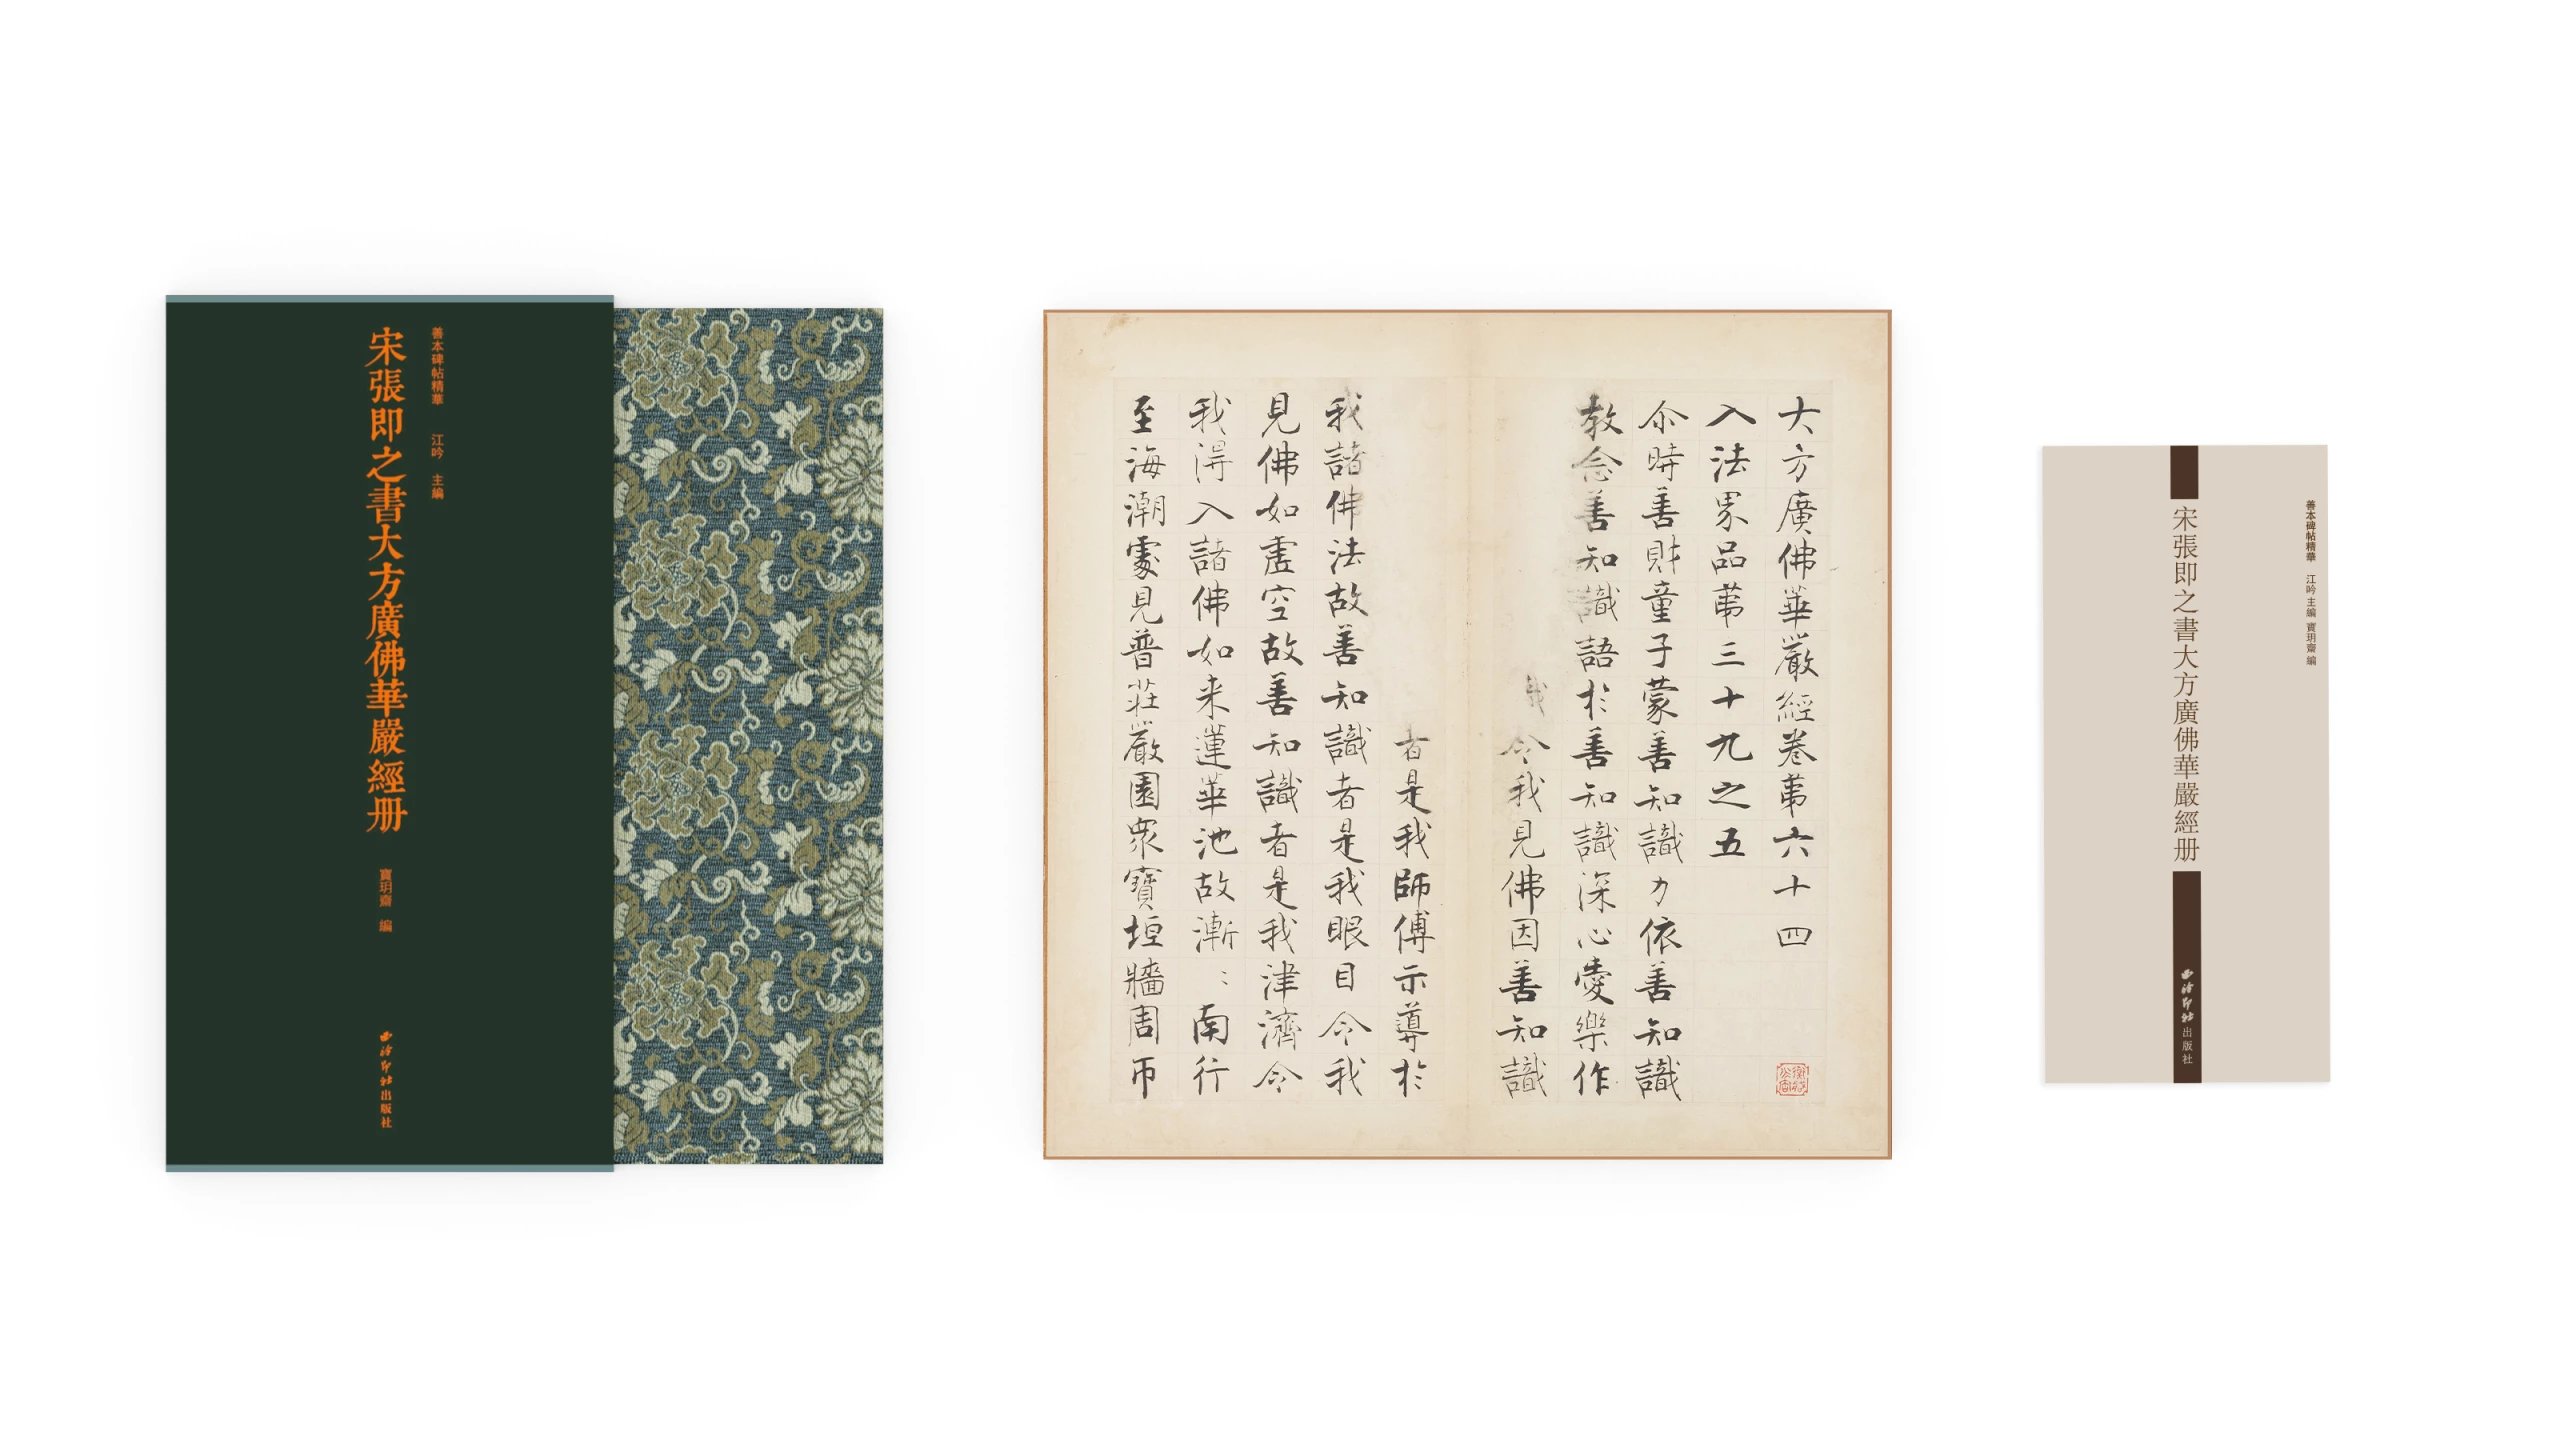 善本碑帖精華　江吟　主編
宋張即之書大方廣佛華嚴經册
寶玥齋　編
西泠印社出版社
大方廣佛華嚴經卷第六十四
入法界品第三十九之五
尒時善財童子蒙善知識力依善知識
教念善知識語於善知識深心愛樂作
我今我見佛因善知識
者是我師傅示導於
我諸佛法故善知識者是我眼目令我
見佛如虛空故善知識者是我津濟令
我得入諸佛如来蓮華池故漸〻南行
至海潮處見普莊嚴園眾寶垣牆周帀
善本碑帖精華　江吟 主編 寶玥齋 編
宋張即之書大方廣佛華嚴經册
西泠印社出版社